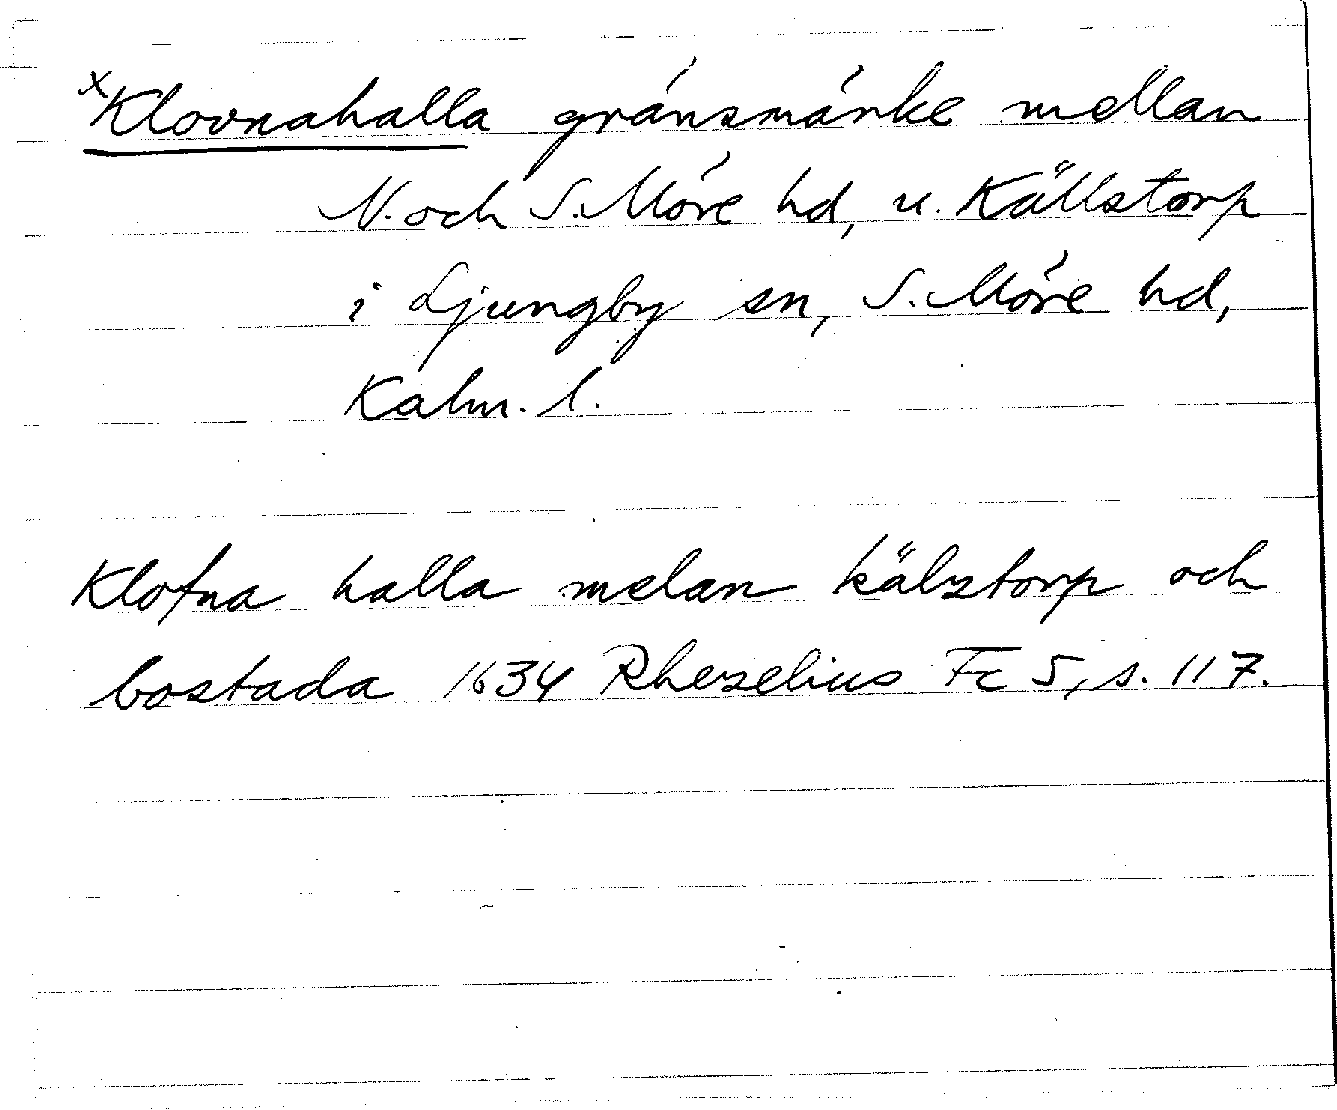 x Klovnahalla gränsmärke mellan
N. och S. Möre hd, u. Källstorp
i Ljungby sn, S. Möre hd,
Kalm. l.
Klofna halla melan kälztorp och
bostada 1634 Rhezelius Fc 5, s. 117.